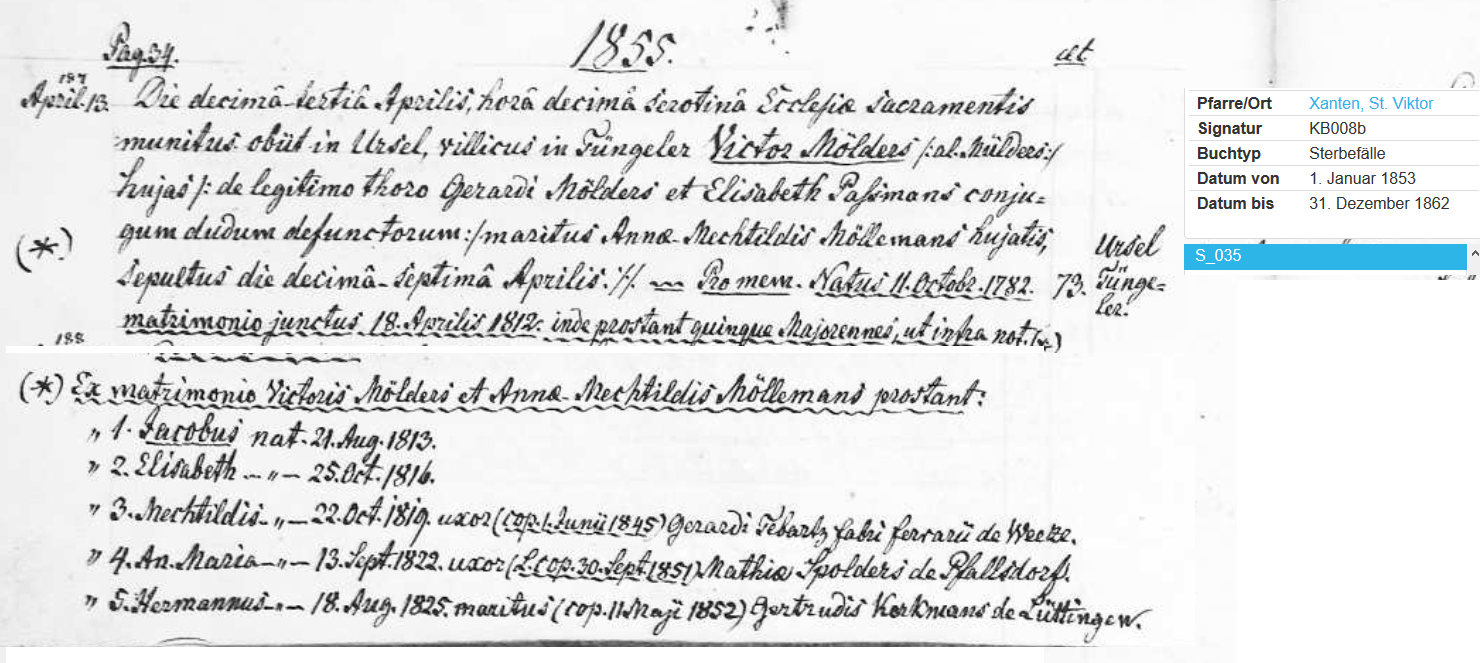 Pag. 34. 1855. æt
187
April. 13. Die decimâ tertiâ Aprilis, horâ decimâ serotinâ Ecclesiæ sacramentis
munitus obiit in Ursel, villicus in Tüngeler Victor Mölders /: al. Mülders :/
hujas /: de legitimo thoro Gerardi Mölders et Elisabeth Paſsmans conju=
gum dudum defunctorum :/ maritus Annæ Mechtildis Möllemans hujatis,
(*) sepultus die decimâ septimâ Aprilis. Pro mem. Natus 11. Octobr. 1782. 73. Ursel Tünge=ler.
matrimonio junctus 18. Aprilis 1812. inde prostant quinque Majorennes, ut infra not. (*)
188
(*) Ex matrimonio Victoris Mölders et Annæ Mechtildis Möllemans prostant:
„ 1. Jacobus nat. 21. Aug. 1813.
„ 2. Elisabeth – „ – 25. Oct. 1816.
„ 3. Mechtildis – „ – 22. Oct. 1819. uxor (cop. 1. Junii 1845) Gerardi Tebartz fabri ferrarii de Weeze.
„ 4. An. Maria – „ – 13. Sept. 1822. uxor (L. cop. 30. Sept. 1851) Mathiæ Spolders de Pfallsdorf.
„ 5. Hermannus – „ – 18. Aug. 1825. maritus (cop. 11. Maji 1852) Gertrudis Kerkmans de Lüttingen.
Pfarre/Ort Xanten, St. Viktor
Signatur KB008b
Buchtyp Sterbefälle
Datum von 1. Januar 1853
Datum bis 31. Dezember 1862
S_035